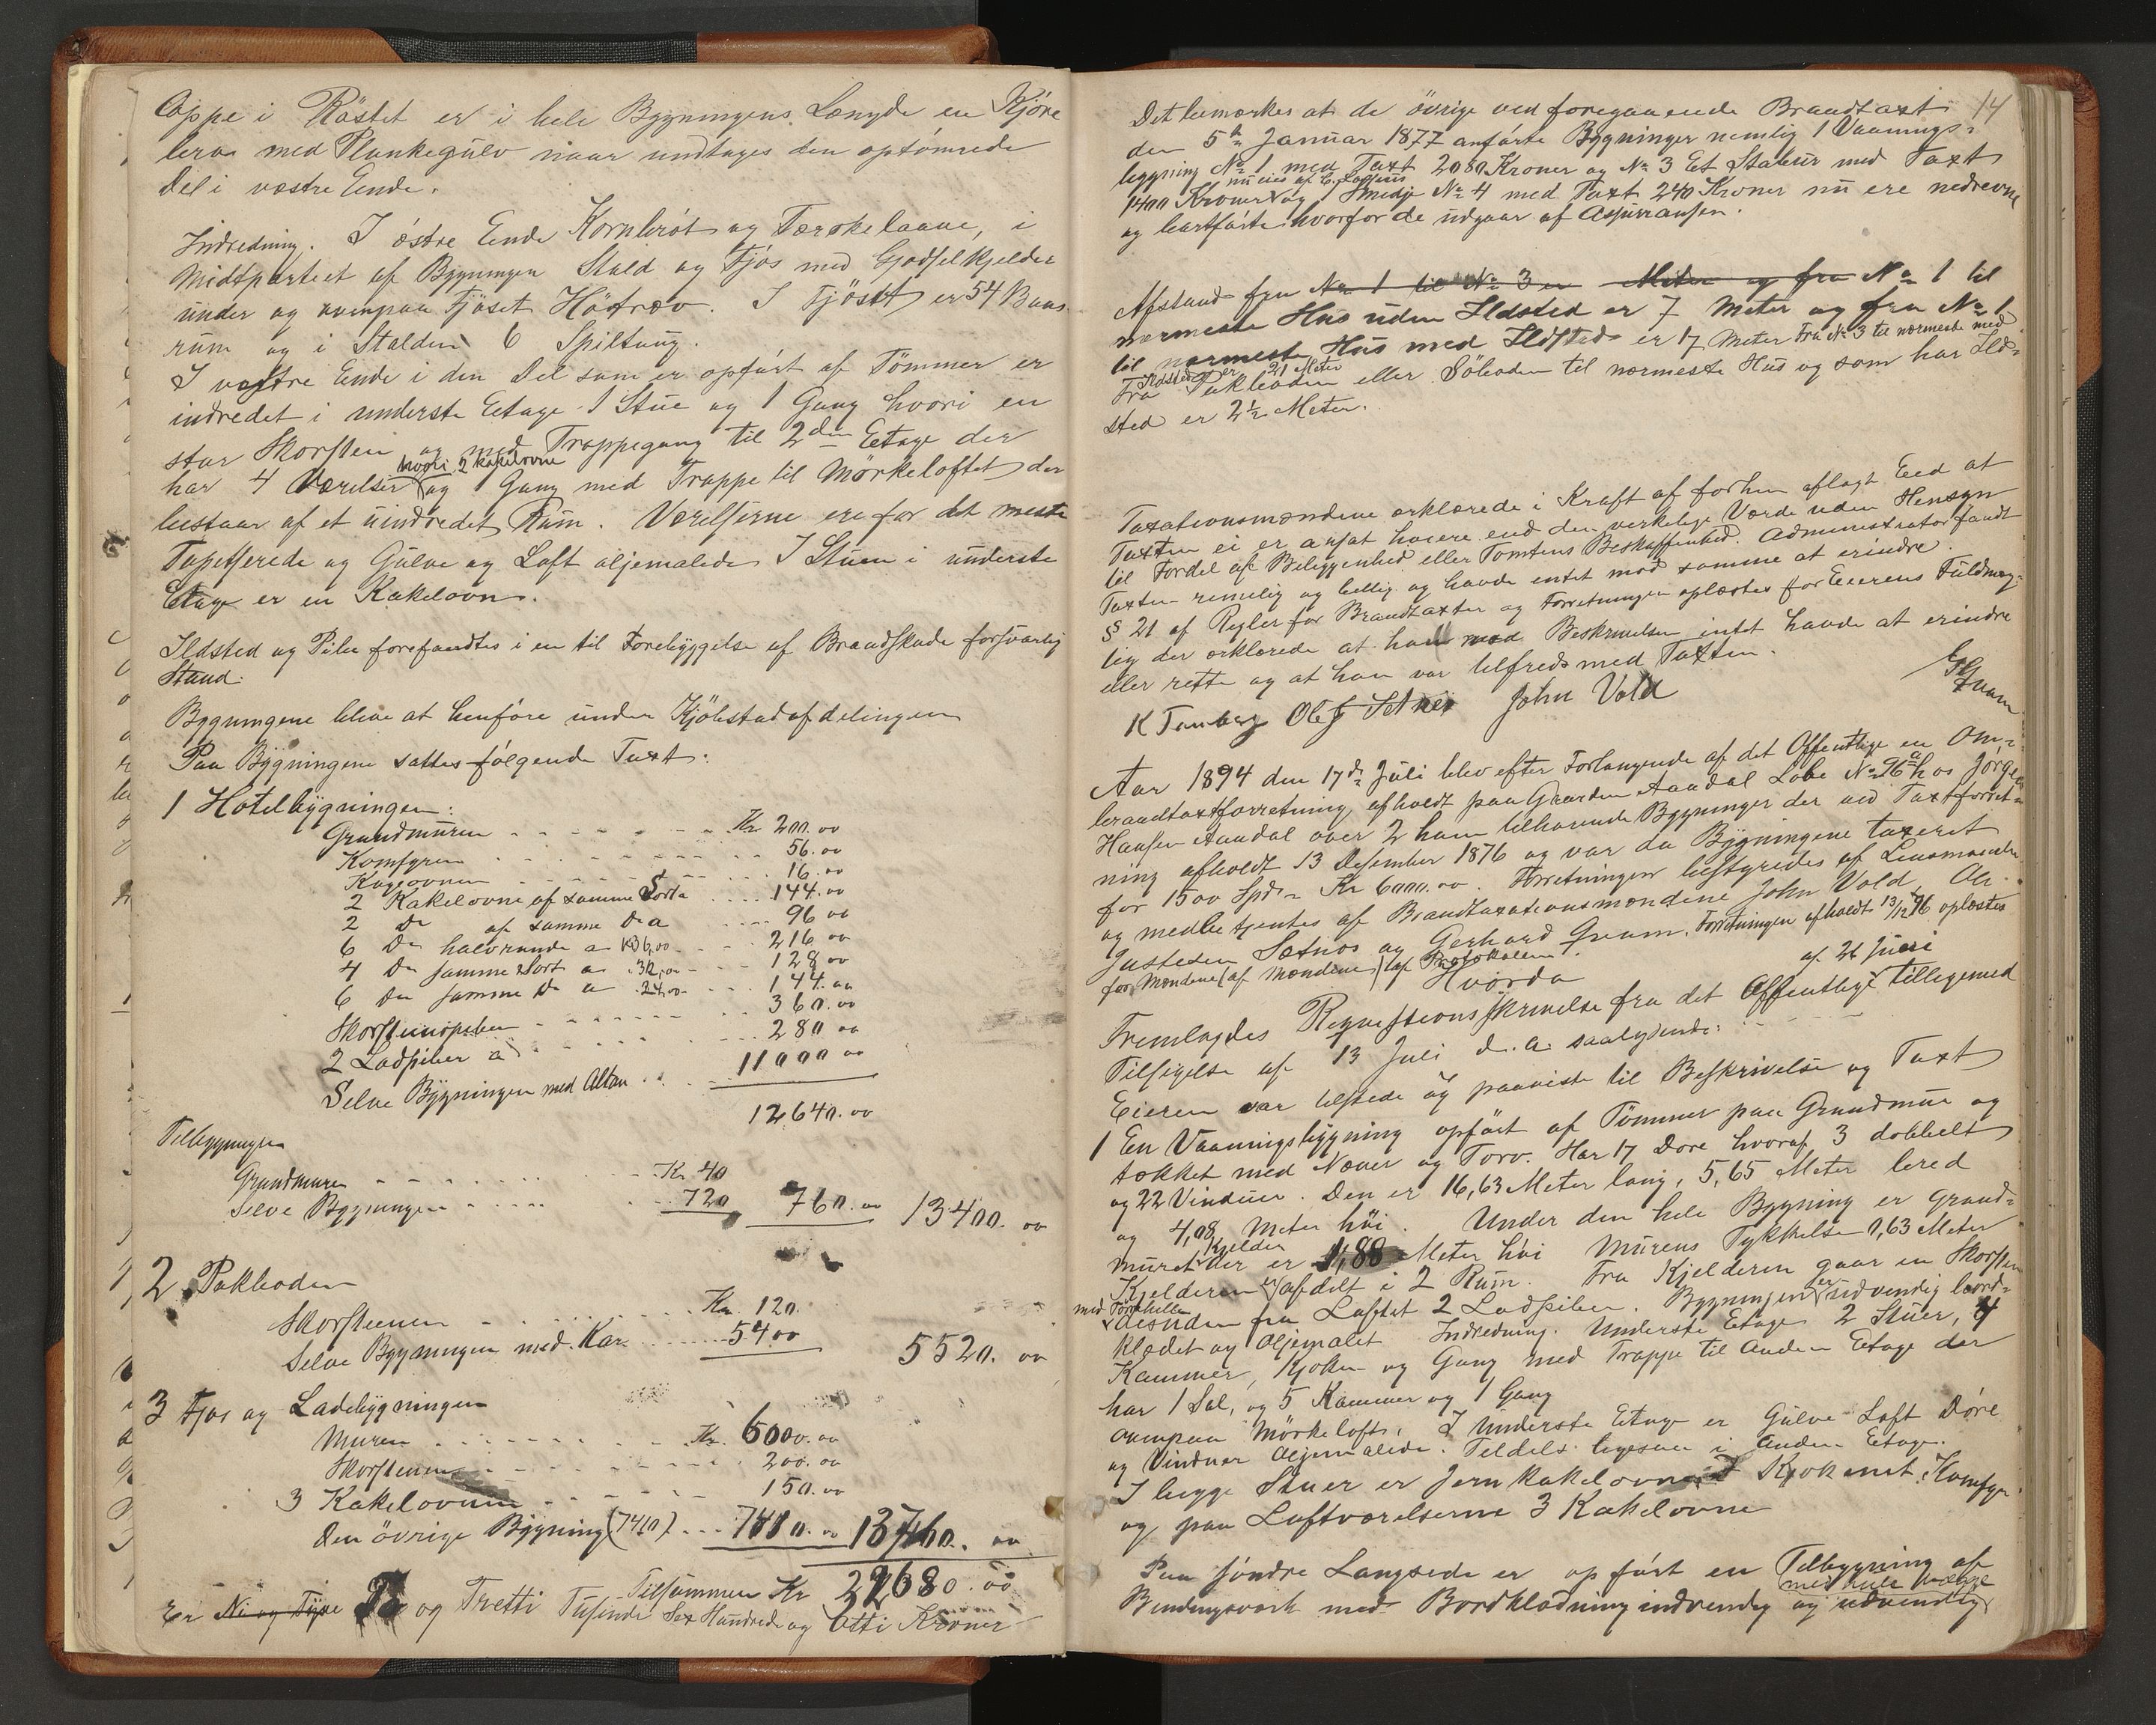 Oppe i Röstet er i hele Bygningens Længde en Kjöre
bro med Plankegulv naar undtages den optömrede
Del i vestre Ende.
Indredning. I östre Ende Kornbröt og Tærskelaave, i
Midtpartiet af Bygningen Stald og Fjös med Gjødselkjelder
under og ovenpaa Fjöset Hötrev. I Fjöset er 54 Baas
rum og i Stalden 6 Spiltaug.
I vestre Ende i den Del som er opfört af Tömmer er
indredet i underste Etage 1 Stue og 1 Gang hvori en
star Skorsten og med Trappegang til 2den Etage der
hvori 2 kakelovne
har 4 Værelser og 1 Gang med Trappe til Mörkeloftet der
bestaar af et uindredet Rum. Værelserne ere for det meste
Tapetserede og Gulve og Loft oljemalede I Stuen i underste
Etage er en Kakelovn.
Ildsted og Piber forefandtes i en til Forebyggelse af Brandskade forsvarlig
Stand.
Bygningene blive at henföre under Kjöbstadafdelingen
Paa Bygningene sattes fölgende Taxt:
1 Hotelbygningen:
Grundmuren Kr 200.00
Komfyren 56.00
Kogeovnen 16.00
2 Kakelovne af samme Sort a 144.00
2 Do af samme Do a 96 00
6 Do halvrunde a Kr 36,00 216 00
4 Do samme Sort a 32,00 128 00
6 Do samme Do a 24,00 144.00
Skorstenspiben 360.00
2 Ladpiber a 280 00
Selve Bygningen med Altan 11000 00
12640.00
Tilbygningen
Grundmuren Kr 40
Selve Bygningen 720 760.00 13400.00
2 Pakboden
Skorstenen Kr. 120.
Selve Bygningen med Kai 5400 5520.00
3 Fjös og Ladebygningen
Muren Kr. 6000.00
Skorstenen 200.00
3 Kakelovne 150.00
Den övrige Bygning (7410) 7410.00 13760.00
Tilsammen Kr 32680.00
Er Ni og Tyve To og Tretti Tusinde Sex Hundrede og Otti Kroner
14
Det bemærkes at de övrige ved foregaaende Brandtaxt
den 5te Januar 1877 anförte Bygninger nemlig 1 Vaanings-
bygning No 1 med Taxt 2080 Kroner og No 3 Et Stabur med Taxt
1400 Kroner og Smedje No 4 med Taxt 240 Kroner nu ere nedrevne
og bortförte hvorfor de udgaar af Assuransen.
Afstand fra No 1 til No 3 er Meter og fra No 1 til
nærmeste Hus uden Ildsted er 7 Meter og fra No 1
til nærmeste Hus med Ildsted er 17 Meter Fra No 3 til nærmeste med
Ildsted er 21 Meter
Fra Pakboden eller Söboden til nærmeste Hus og som har Ild-
sted er 2½ Meter.
Taxationsmændene erklærede i Kraft af forhen aflagt Eed at
Taxten ei er ansat høiere end den virkelige Værde uden Hensyn
til Fordel af Beliggenhed eller Tomtens Beskaffenhed. Administrator fandt
Taxten rimelig og billig og havde intet mod samme at erindre.
§ 21 af Regler for Brandtaxter og Forretningen oplæstes for Eierens Fuldmæg-
tig der erklærede at han mod Beskrivelsen intet havde at erindre
eller rette og at han var tilfreds med Taxten.
K Tomberg Ole J Setnes John Vold G Gram
Aar 1894 den 17de Juli blev efter Forlangende af det Offentlige en Om-
brandtaxtforretning afholdt paa Gaarden Aandal Löbe No 96a hos Jörgen
Hansen Aandal over 2 ham tilhørende Bygninger der ved Taxtforret-
ning afholdt 13 Desember 1876 og var da Bygningene taxeret
for 1500 Spd = Kr 6000.00. Forretningen bestyredes af Lensmanden
og medbetjentes af Brandtaxationsmændene John Vold, Ole
Justesen Sætnes og Gerhard Gram. Forretningen afholdt 13/12 76 oplæstes
for Mændene af Mændene af Protokollen.
Hvorda
af 26 Juni
Fremlagdes Requisitionsskrivelse fra det Offentlige tilligemed
Tilsigelse af 13 Juli d. a. saalydende:
Eieren var tilstede og paaviste til Beskrivelse og Taxt
1 En Vaaningsbygning opfört af Tömmer paa Grundmur og
tækket med Næver og Torv. Har 17 Döre hvoraf 3 dobbelt
og 22 Vinduer. Den er 16,63 Meter lang, 5,65 Meter bred
og 4,08 Meter höi. Under den hele Bygning er grund-
Kjelder
muret der er 1,88 Meter höi Murens Tykkelse 0,63 Meter
Kjelderen er afdelt i 2 Rum. Fra Kjelderen gaar en Skorsten
med Törrhille
desuden fra Loftet 2 Ladpiber. Bygningen er udvendig bord-
klædet og Oljemalet Indredning. Underste Etage 2 Stuer, 4
Kammer, Kjøken og Gang med Trappe til Anden Etage der
har 1 Sal, og 5 Kammer og 1 Gang
ovenpaa Mörkeloft. I Underste Etage er Gulve Loft Döre
og Vinduer Oljemalede. Tildels ligesaa i Anden Etage.
I begge Stuer er Jernkakelovn i Kjøkenet Komfyr
og paa Loftværelserne 3 Kakelovne
Paa söndre Langside er opfört en Tilbygning af
Bindingsværk med Bordklædning indvendig og udvendig